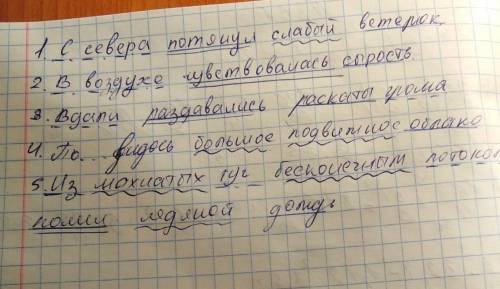 1. С севера потянул слабый ветерок.
2. В воздухе чувствовалась сырость.
3. Вдали раздавались раскаты грома
4. По... вилось большое подвижное облако
5. Из мохнатых туч бесконечным потоком
полил ледяной дождь